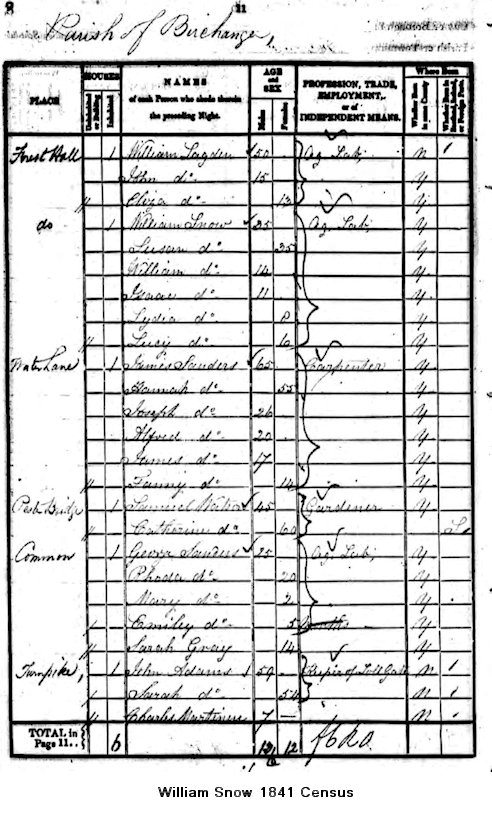 8 11
Parish of Birchanger,
PLACE
HOUSES
Uninhabited or Building
Inhabited
NAMES
of each Person who abode therein
the preceding Night.
AGE
and
SEX
Males
Females
PROFESSION, TRADE,
EMPLOYMENT,
or of
INDEPENDENT MEANS.
Where Born
Whether Born in same County
Whether Born in Scotland, Ireland, or Foreign Parts.
Forest Hall 1 William Lagden 50 Ag. Lab; n
John do 15 y
" Eliza do 13 y
do 1 William Snow 35 Ag. Lab; y
Susan do 35 y
William do 14 y
Isaac do 11 y
Lydia do 8 y
" Lucy do 6 y
Water Lane 1 James Sanders 65 Carpenter y
Hannah do 55 y
Joseph do 26 y
Alfred do 20 y
James do 17 y
" Fanny do 14 y
1 Samuel 45 Gardener y
" Catherine do 60
Common 1 George Sanders 25 Ag. Lab; y
Rhoda do 20 y
Mary do 2 y
Emiley do 5 y
" Sarah Gray 14 y
Turnpike, 1 John Adams 59 Keeper of Toll Gate n
Sarah do 54 n
" Charles 7 n
TOTAL in
Page 11.. 6 12
William Snow 1841 Census